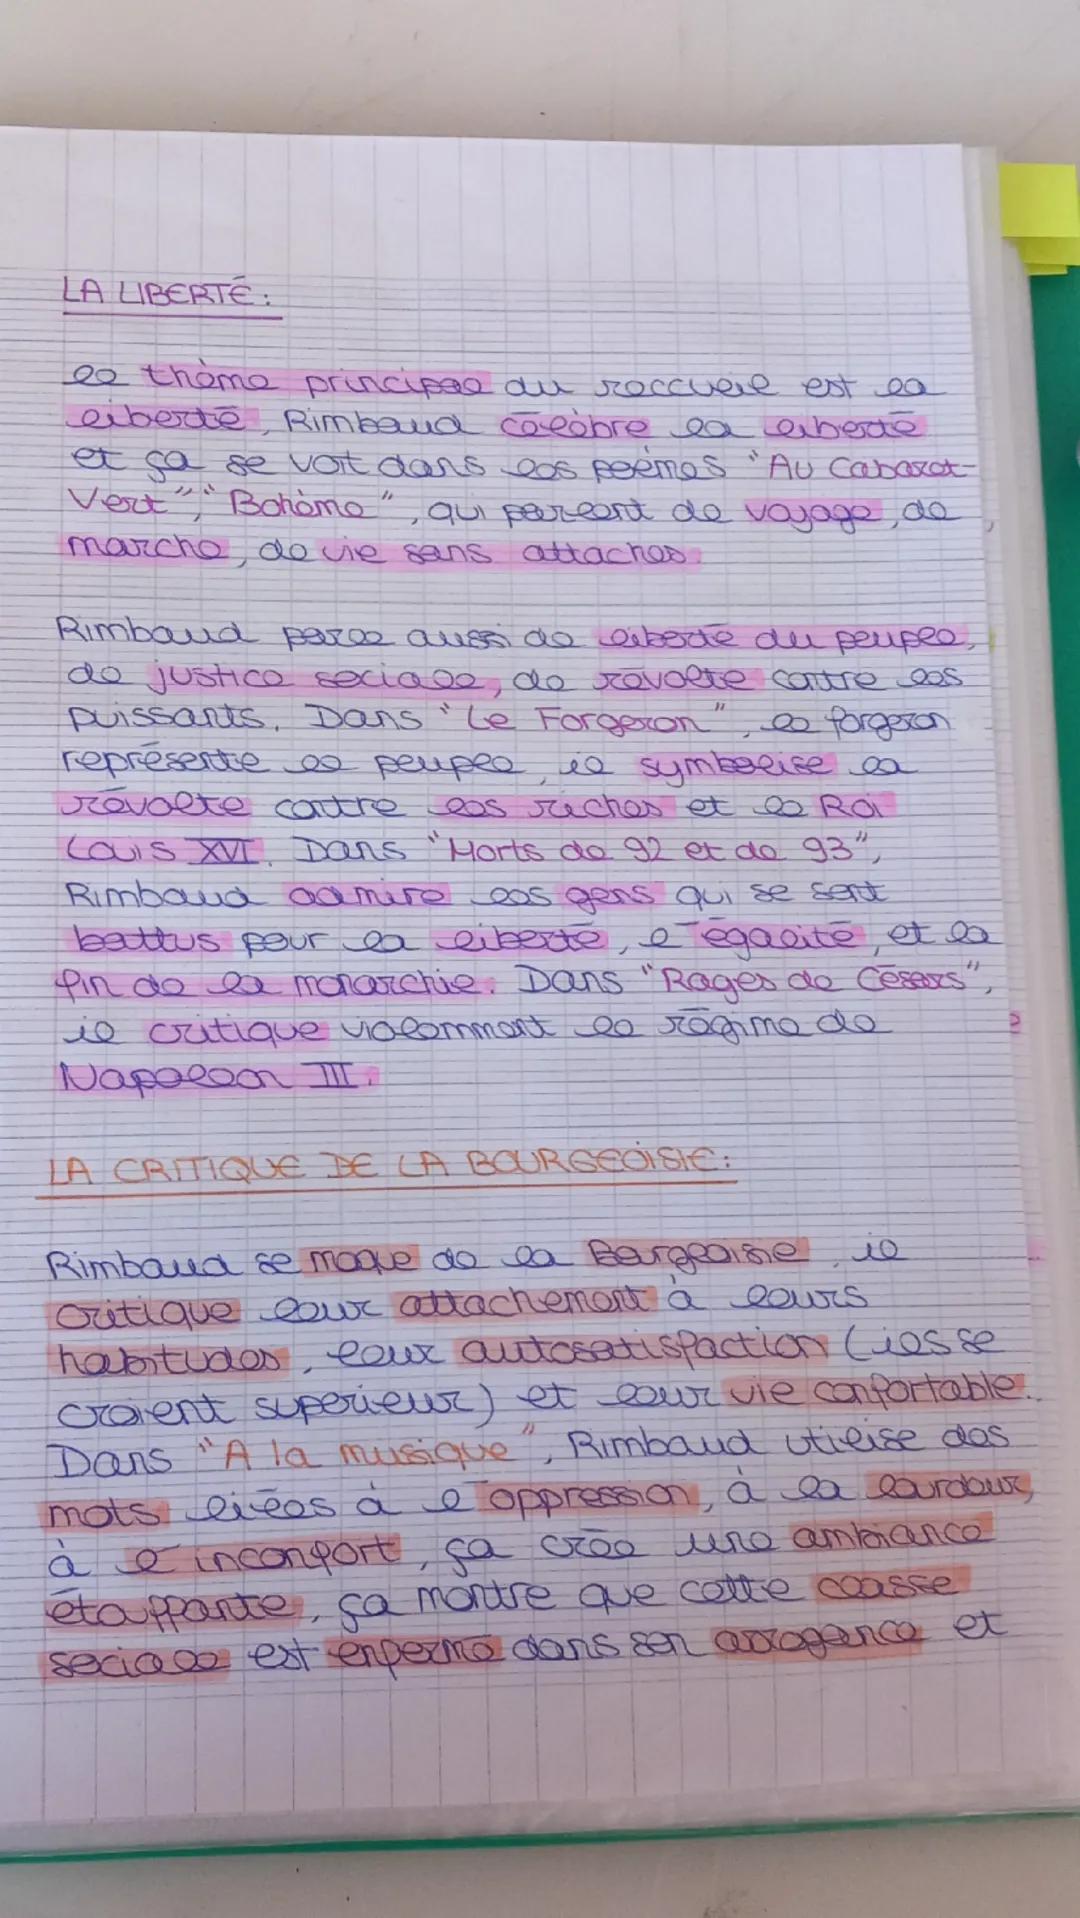 LA LIBERTÉ :
le thème principal du reccueil est la
liberté, Rimbaud célèbre la liberté
et ça se voit dans les poèmes "Au Cabaret-
Vert", "Bohème", qui parlent de voyage, de
marche, de vie sans attaches.
Rimbaud parle aussi de liberté du peuple,
de justice sociale, de révolte contre les
puissants. Dans "Le Forgeron", le forgeron
représente le peuple, il symbolise la
révolte contre les riches et le Roi
Louis XVI. Dans "Morts de 92 et de 93",
Rimbaud admire les gens qui se sont
battus pour la liberté, l'égalité, et la
fin de la monarchie. Dans "Rages de Césars",
il critique violemment le régime de
Napoléon III.
LA CRITIQUE DE LA BOURGEOISIE :
Rimbaud se moque de la Bourgeoisie, il
critique leur attachement à leurs
habitudes, leur autosatisfaction (ils se
croient supérieur) et leur vie confortable.
Dans "A la musique", Rimbaud utilise des
mots liées à l'oppression, à la lourdeur,
à l'inconfort, ça crée une ambiance
étouffante, ça montre que cette classe
sociale est enfermé dans son arrogance et